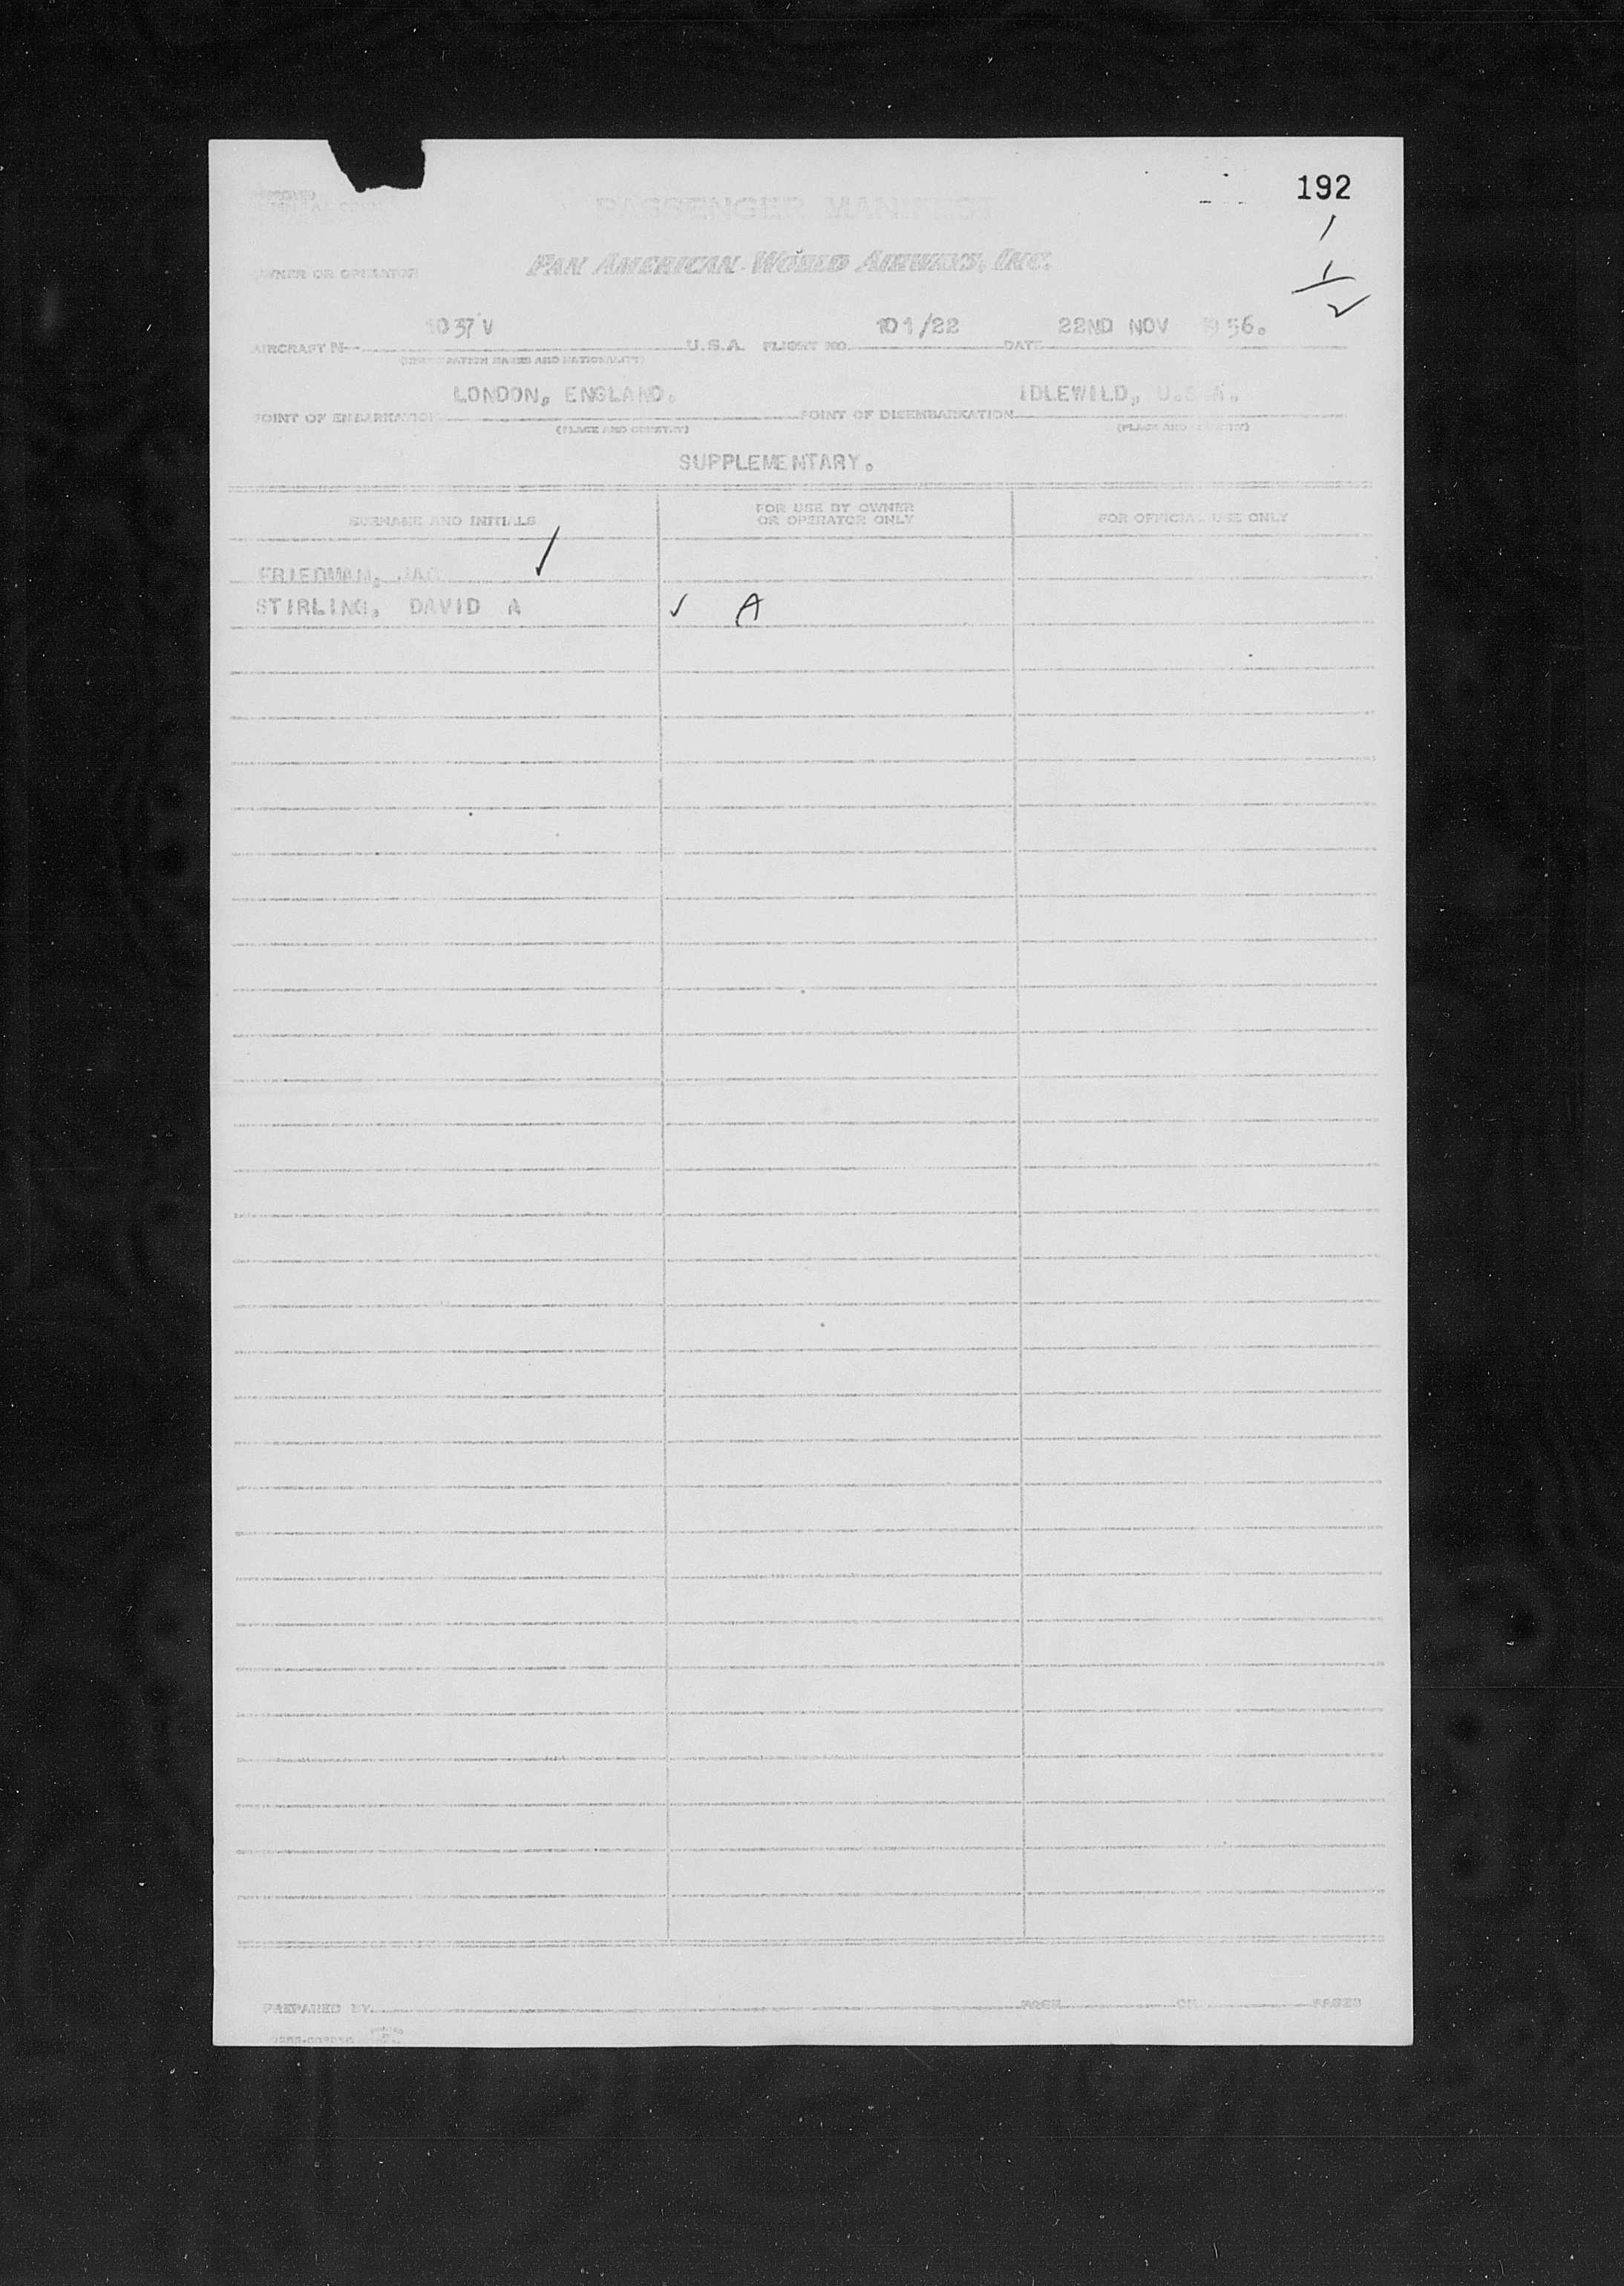 192
PASSENGER MANIFEST
/
OWNER OR OPERATOR PAN AMERICAN WORLD AIRWAYS, INC.
1
2
1037V 101/22 22ND NOV 1956.
AIRCRAFT N U.S.A. FLIGHT NO. DATE
(REGISTRATION MARKS AND NATIONALITY)
LONDON, ENGLAND. IDLEWILD, U.S.A.
POINT OF EMBARKATION POINT OF DISEMBARKATION
(PLACE AND COUNTRY) (PLACE AND COUNTRY)
SUPPLEMENTARY.
SURNAME AND INITIALS FOR USE BY OWNER OR OPERATOR ONLY FOR OFFICIAL USE ONLY
FRIEDMAN, ✓
STIRLING, DAVID A ✓ A
PREPARED BY PAGE OF PAGES